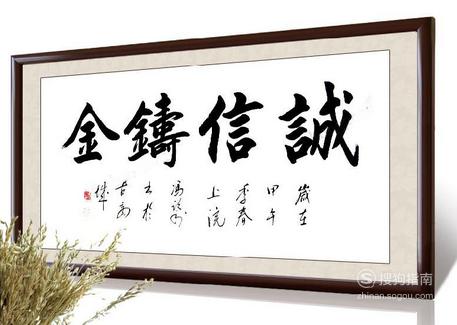 誠信鑄金
歲在
甲午
季春
上浣
书於
搜狗指南
zhinan.sogou.com